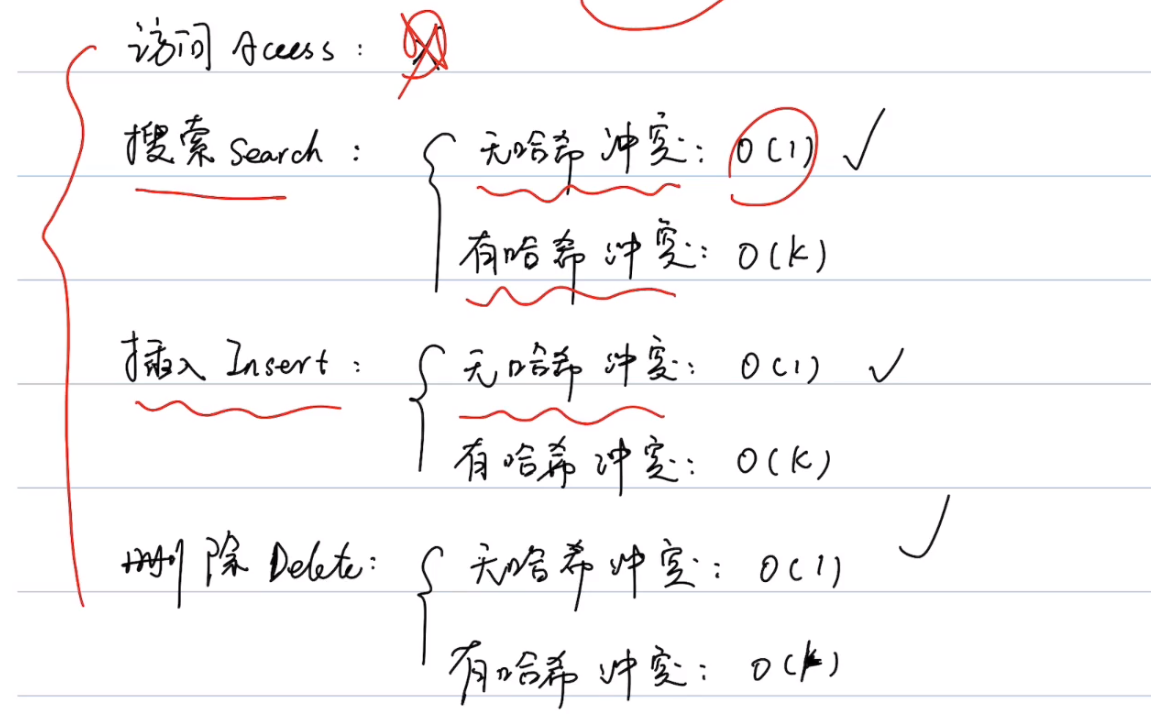 访问 Access: X
搜索 Search: 无哈希冲突: O(1) ✓
有哈希冲突: O(k)
插入 Insert: 无哈希冲突: O(1) ✓
有哈希冲突: O(k)
删除 Delete: 无哈希冲突: O(1) ✓
有哈希冲突: O(k)